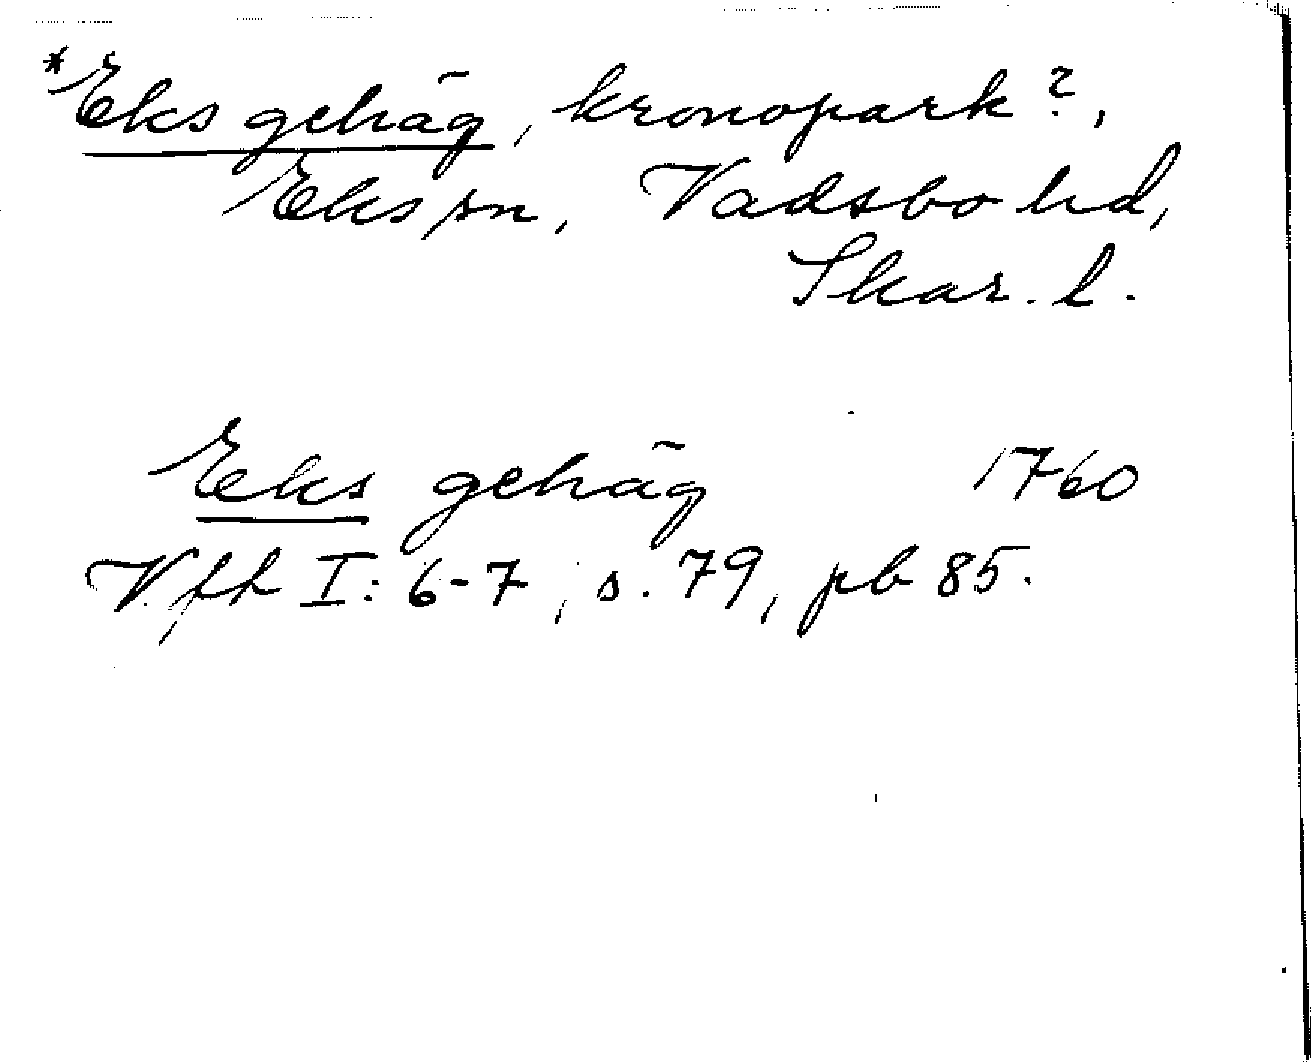 *Eks gehäg, kronopark?,
Eks sn, Vadsbo hd,
Skar. l.
Eks gehäg 1760
Vfh I: 6-7, s. 79, pb 85.